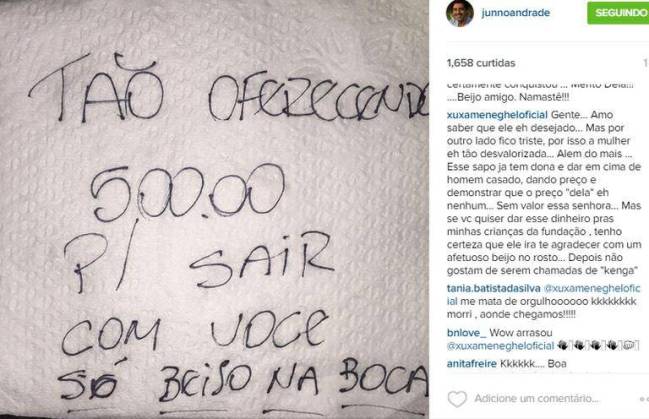 TÃO OFERECENDO
500.00
P/ SAIR
COM VOCE
SÓ BEISO NA BOCA
junnoandrade
SEGUINDO
1,658 curtidas
1
certamente conquistou ... Mérito Dela!!!
....Beijo amigo. Namastê!!!
xuxamenegheloficial Gente... Amo
saber que ele eh desejado... Mas por
outro lado fico triste, por isso a mulher
eh tão desvalorizada... Alem do mais ...
Esse sapo ja tem dona e dar em cima de
homem casado, dando preço e
demonstrar que o preço "dela" eh
nenhum... Sem valor essa senhora... Mas
se vc quiser dar esse dinheiro pras
minhas crianças da fundação , tenho
certeza que ele ira te agradecer com um
afetuoso beijo no rosto... Depois não
gostam de serem chamadas de "kenga"
tania.batistadasilva @xuxameneghelofic
ial me mata de orgulhooooo kkkkkkkk
morri , aonde chegamos!!!!!
bnlove_ Wow arrasou
@xuxamenegheloficial
anitafreire Kkkkkk.... Boa
Adicione um comentário...